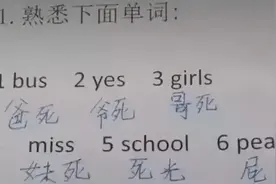 1.熟悉下面单词:
1 bus 2 yes 3 girls
爸死 爷死 哥死
miss 5 school 6 pea
妹死 死光 屁